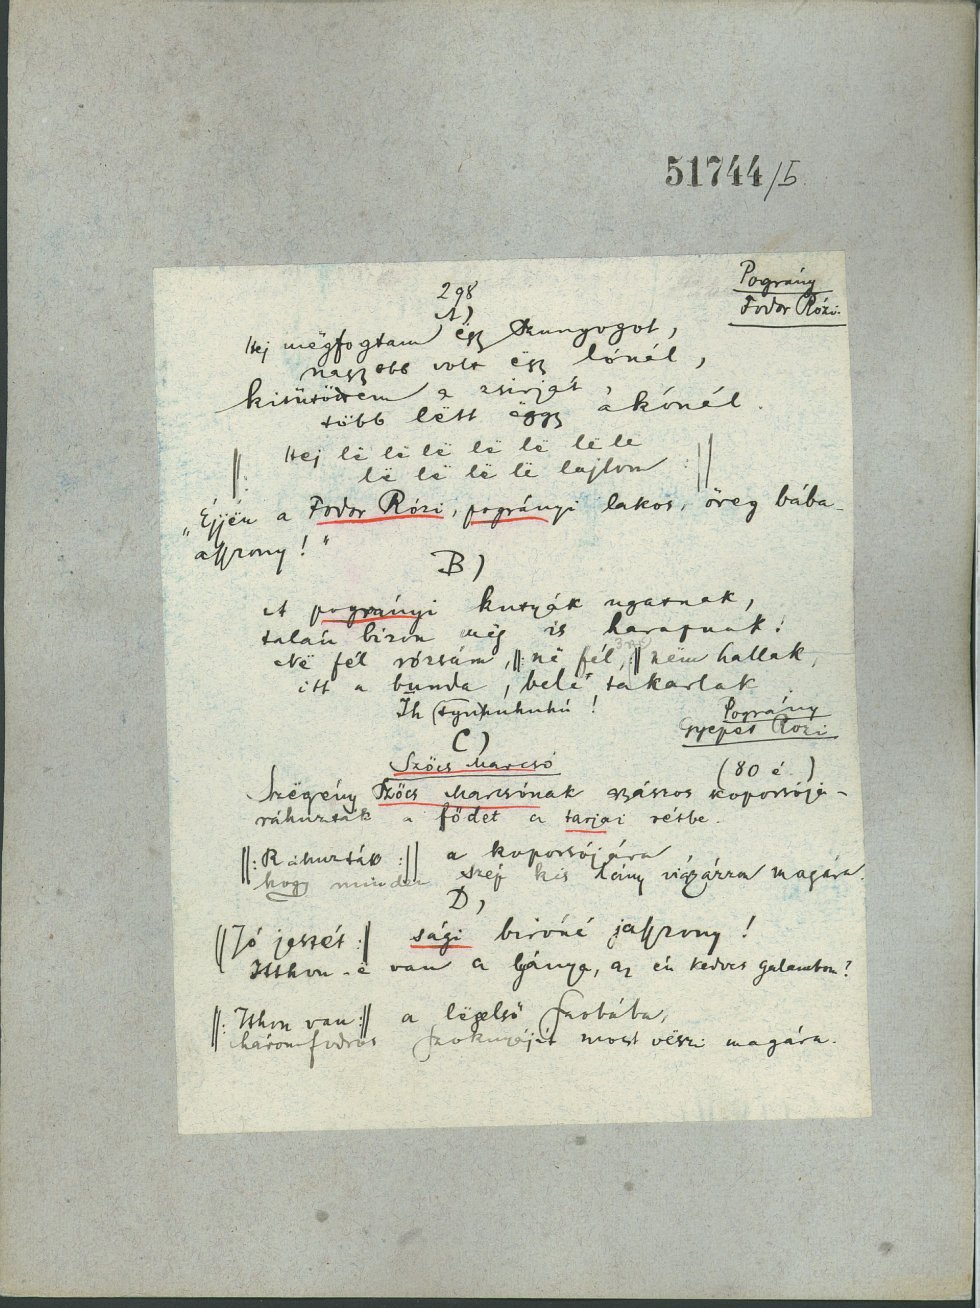 51744/5
298
Pográny
Fodor Rózi.
A)
Hej mëgfogtam ëgy szunyogot,
nagyobb volt ëgy lónál,
kisütöttem a zsirját,
több lëtt ëggy akónál.
||: Hej lë lë lë lë lë lë le
lë lë lë lë lajlom :||
„Éjjën a Fodor Rózi, pogrányi lakos, öreg bába-
asszony!"
B)
A pogrányi kutyák ugatnak,
talán bizon mëg is harapnak!
Në fél rózsám, ||: në fél, :|| nëm hallak,
itt a bunda, belé takarlak
Ih tyuhuhuhú!
Pográny
Gyepes Rózi
(80 é.)
C)
Szőcs Marcsó
Szëgény Szőcs Marcsónak gyászos koporsója-
ráhuzták a födet a tarjai rétbe.
||: Ráhuzták :|| a koporsójára
hogy minden szép kis lány vigyázzon magára.
D)
||: Jó jestét :|| sági biróné jasszony!
Itthon-ë van a lyánya, az én kedves galambom?
||: Ithon van :|| a lëgelső szobába,
háromfodros szoknyáját most vëszi magára.